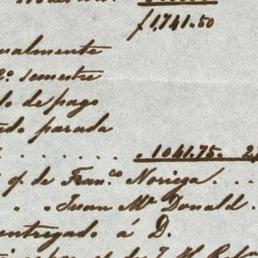 f 1,741.50
ualmente
2º semestre
lo de pago
do parada
. . . . . . 1041.75. 2
q. de Fran.co Noriega. . .
" . " Juan Mc Donald.
entregado á D.